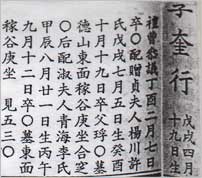 奎行
戊戌四月
十九日生
禮曺叅議丁酉二月七日
卒〇配贈貞夫人楊川許
氏戊戌七月五日生癸酉
十月十四日卒父〇墓
德山東面稼谷庚坐合窆
〇后配淑夫人青海李氏
甲辰八月一日生丙午
九月十二日卒〇墓東面
稼谷庚坐 見五三〇